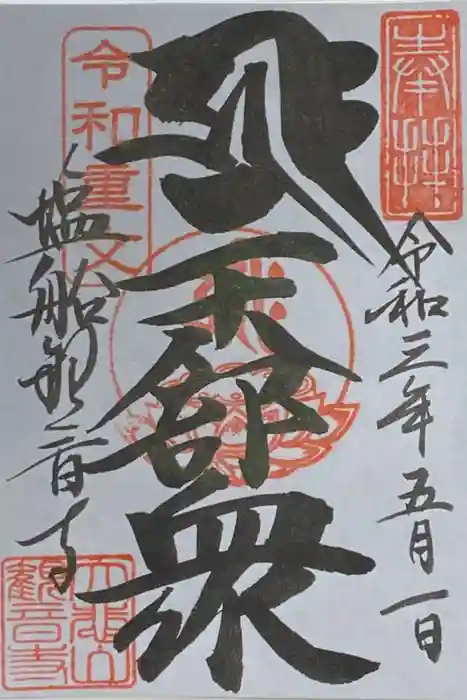 奉拝
令和三年五月一日
天部衆
令和重文
塩船観音寺
大悲山
観音寺